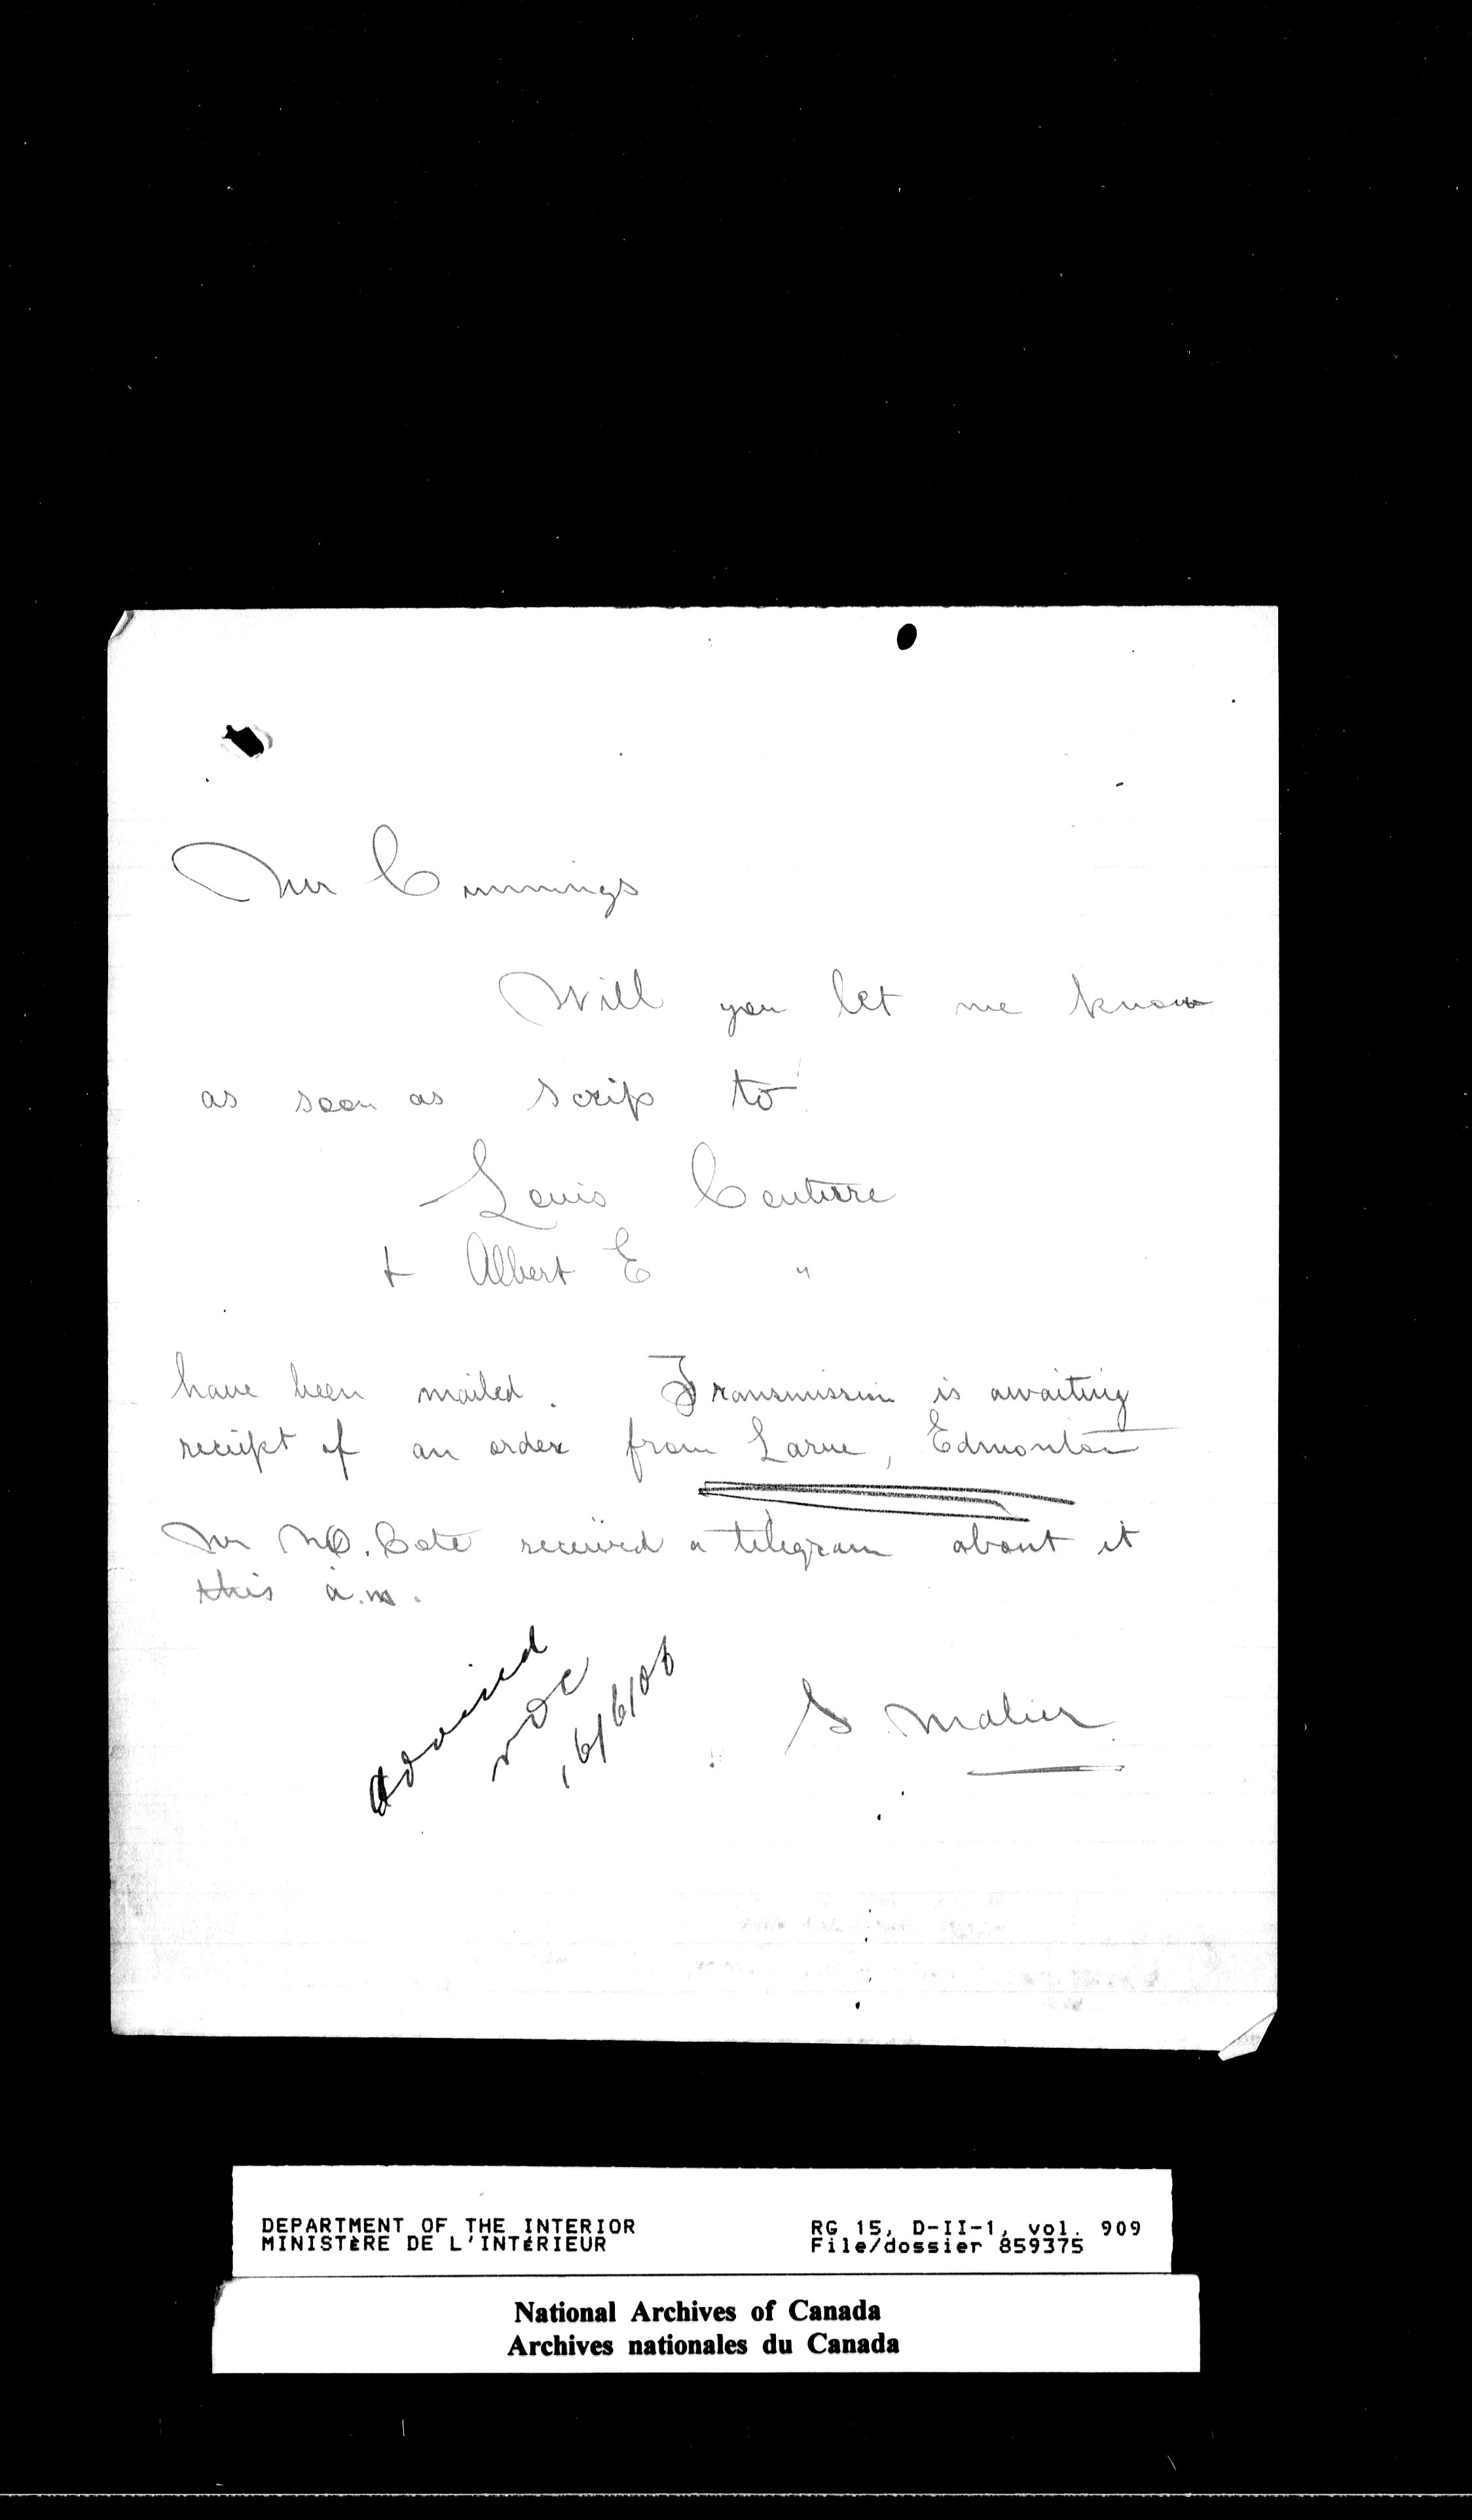 Mr Cummings
Will you let me know
as soon as scrip to
Louis Couture
+ Albert E "
have been mailed. Transmission is awaiting
receipt of an order from Larue, Edmonton
Mr N.O. Cote received a telegram about it
this a.m.
Advised
NOC
16/6/06
S. Malier
DEPARTMENT OF THE INTERIOR
MINISTÈRE DE L'INTÉRIEUR
RG 15, D-II-1, vol. 909
File/dossier 859375
National Archives of Canada
Archives nationales du Canada